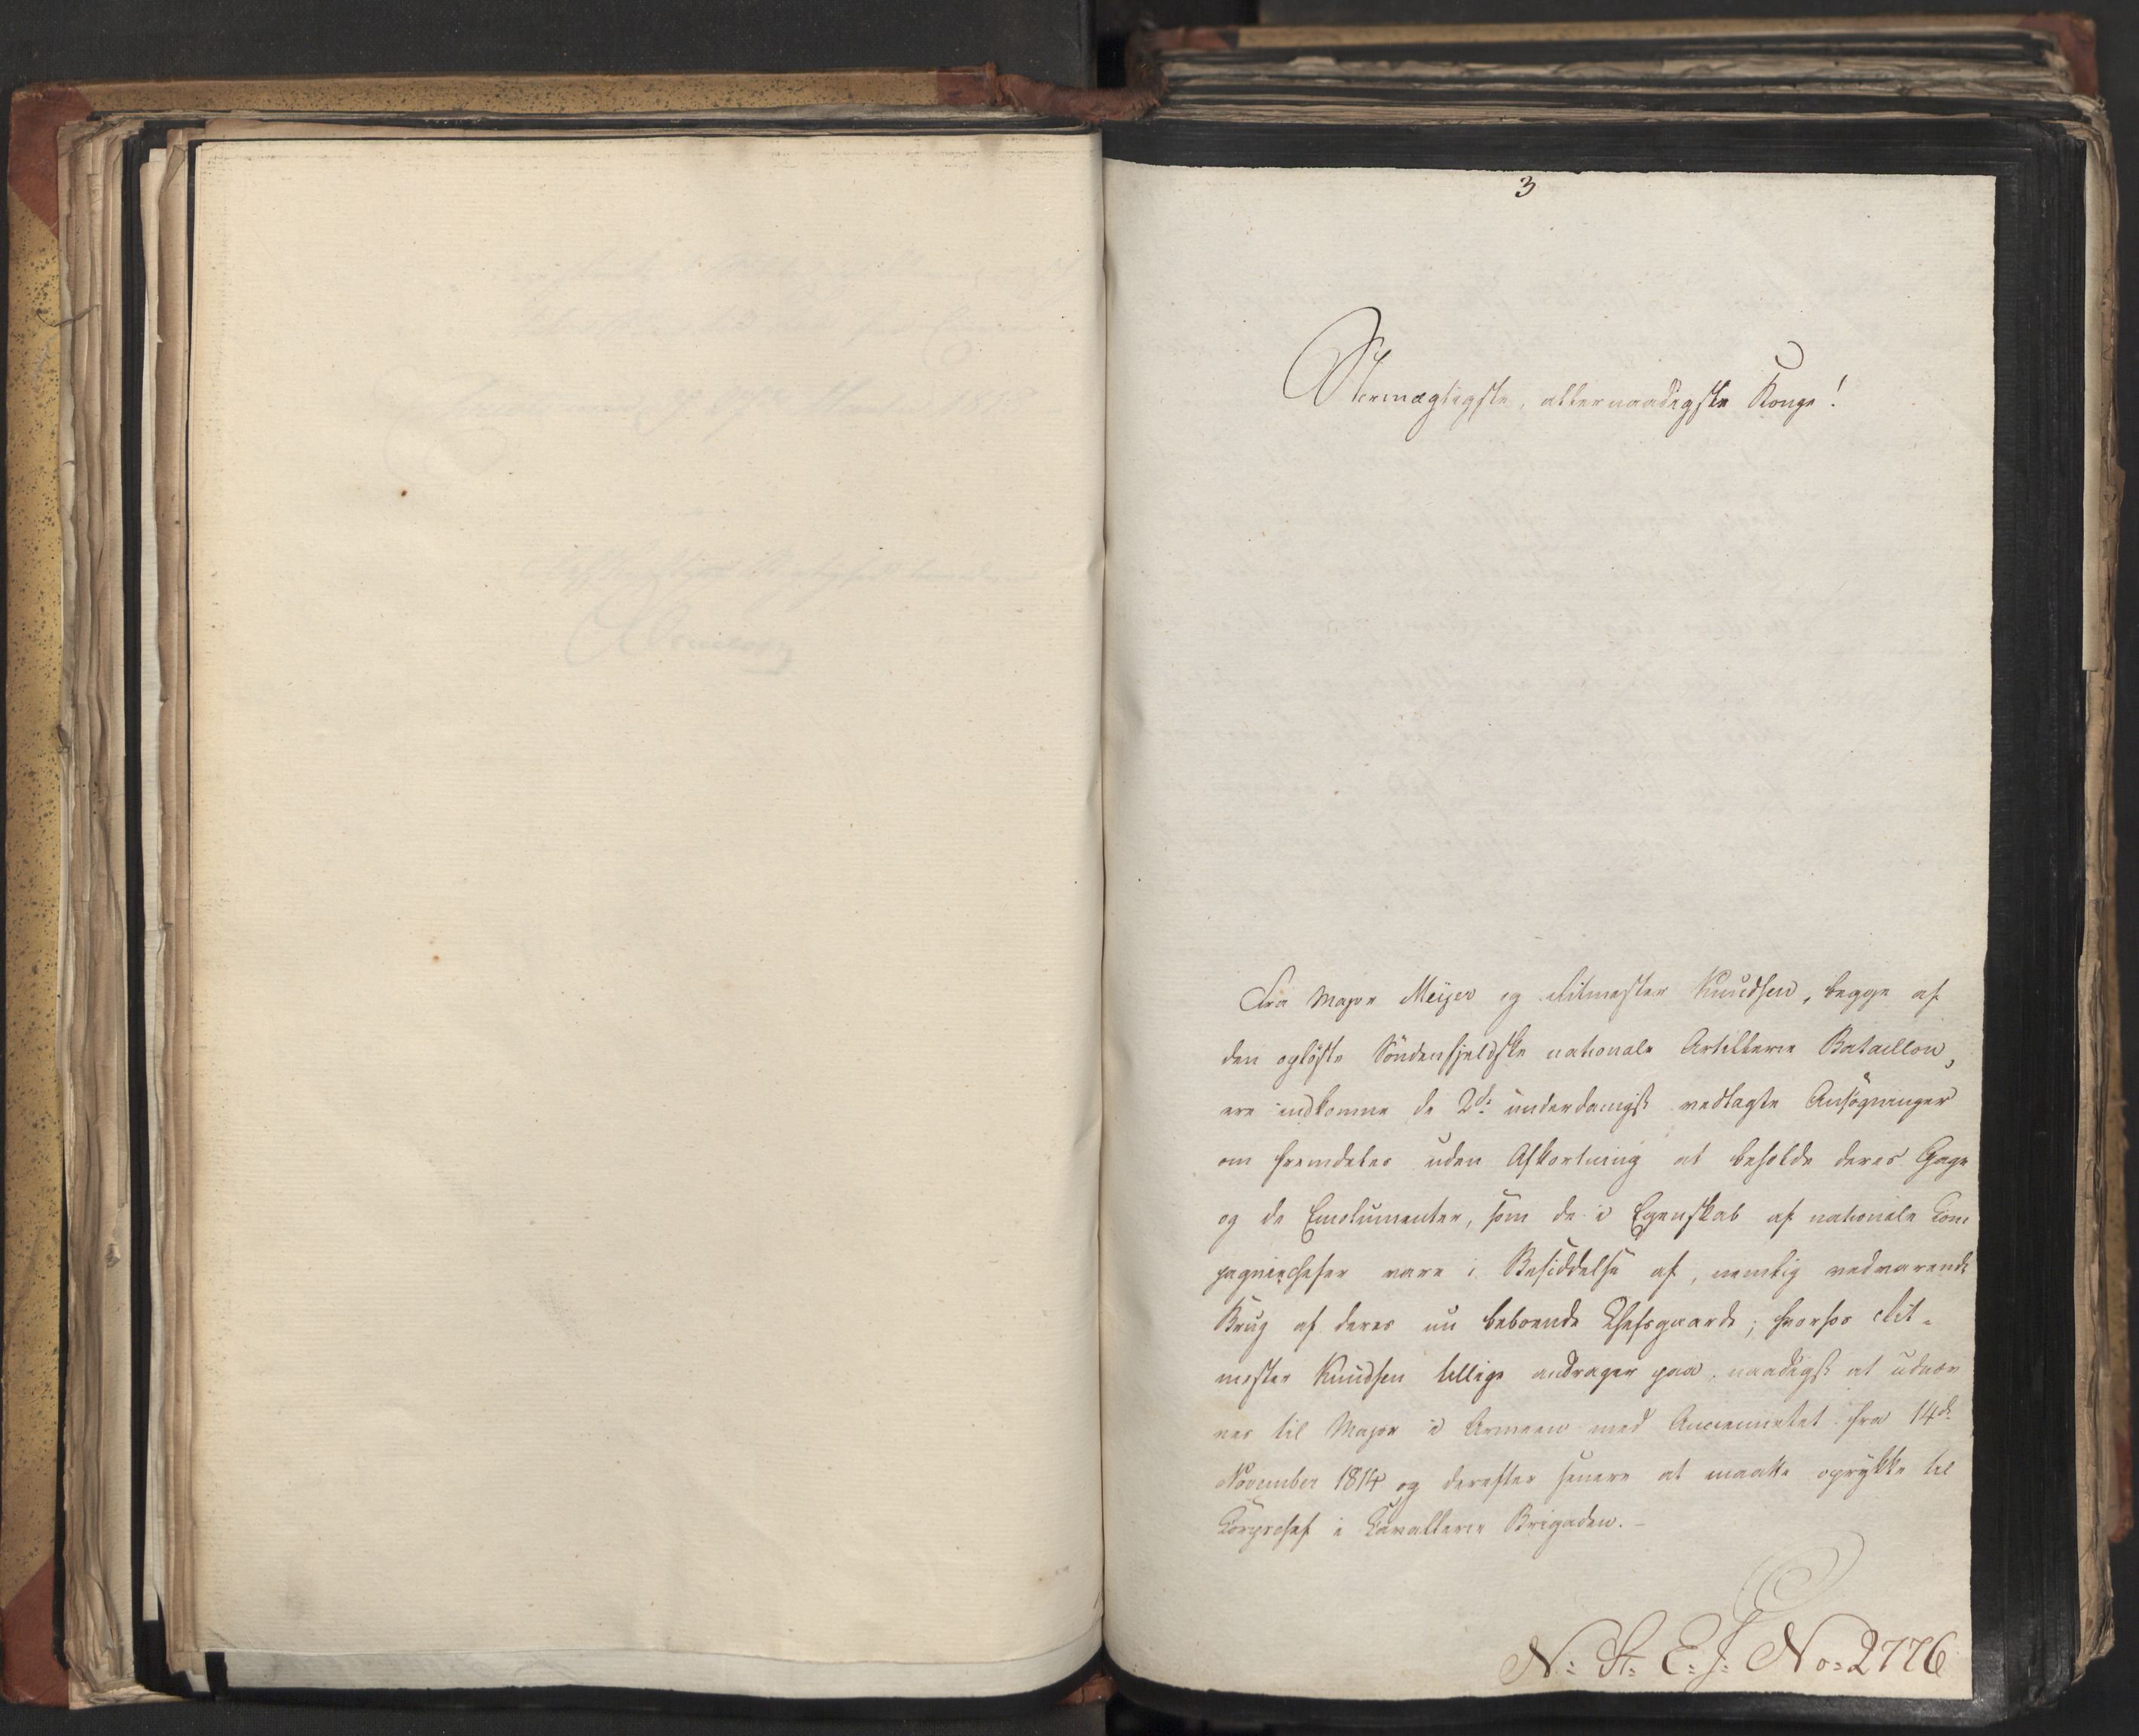 3
Stormægtigste, allernaadigste Konge!
Fra Major Meijer og Ritmester Knudsen, begge af
den opløste Søndenfjeldske nationale Artillerie Bataillon,
ere indkomne de 2de underdanigst vedlagte Ansøgninger
om fremdeles uden Afkortning at beholde deres Gage
og de Emolumenter, som de i Egenskab af nationale Com
pagniechefer vare i Besiddelse af, nemlig vedvarende
Brug af deres nu beboende Chefsgaarde; hvorhos Rit-
mester Knudsen tillige andrager paa, naadigst at udnæv
nes til Major i Armeen med Anciennetet fra 14de
November 1814 og derefter senere at maatte oprykke til
Corpschef i Cavallerie Brigaden. -
N: St: E: J: No: 2776